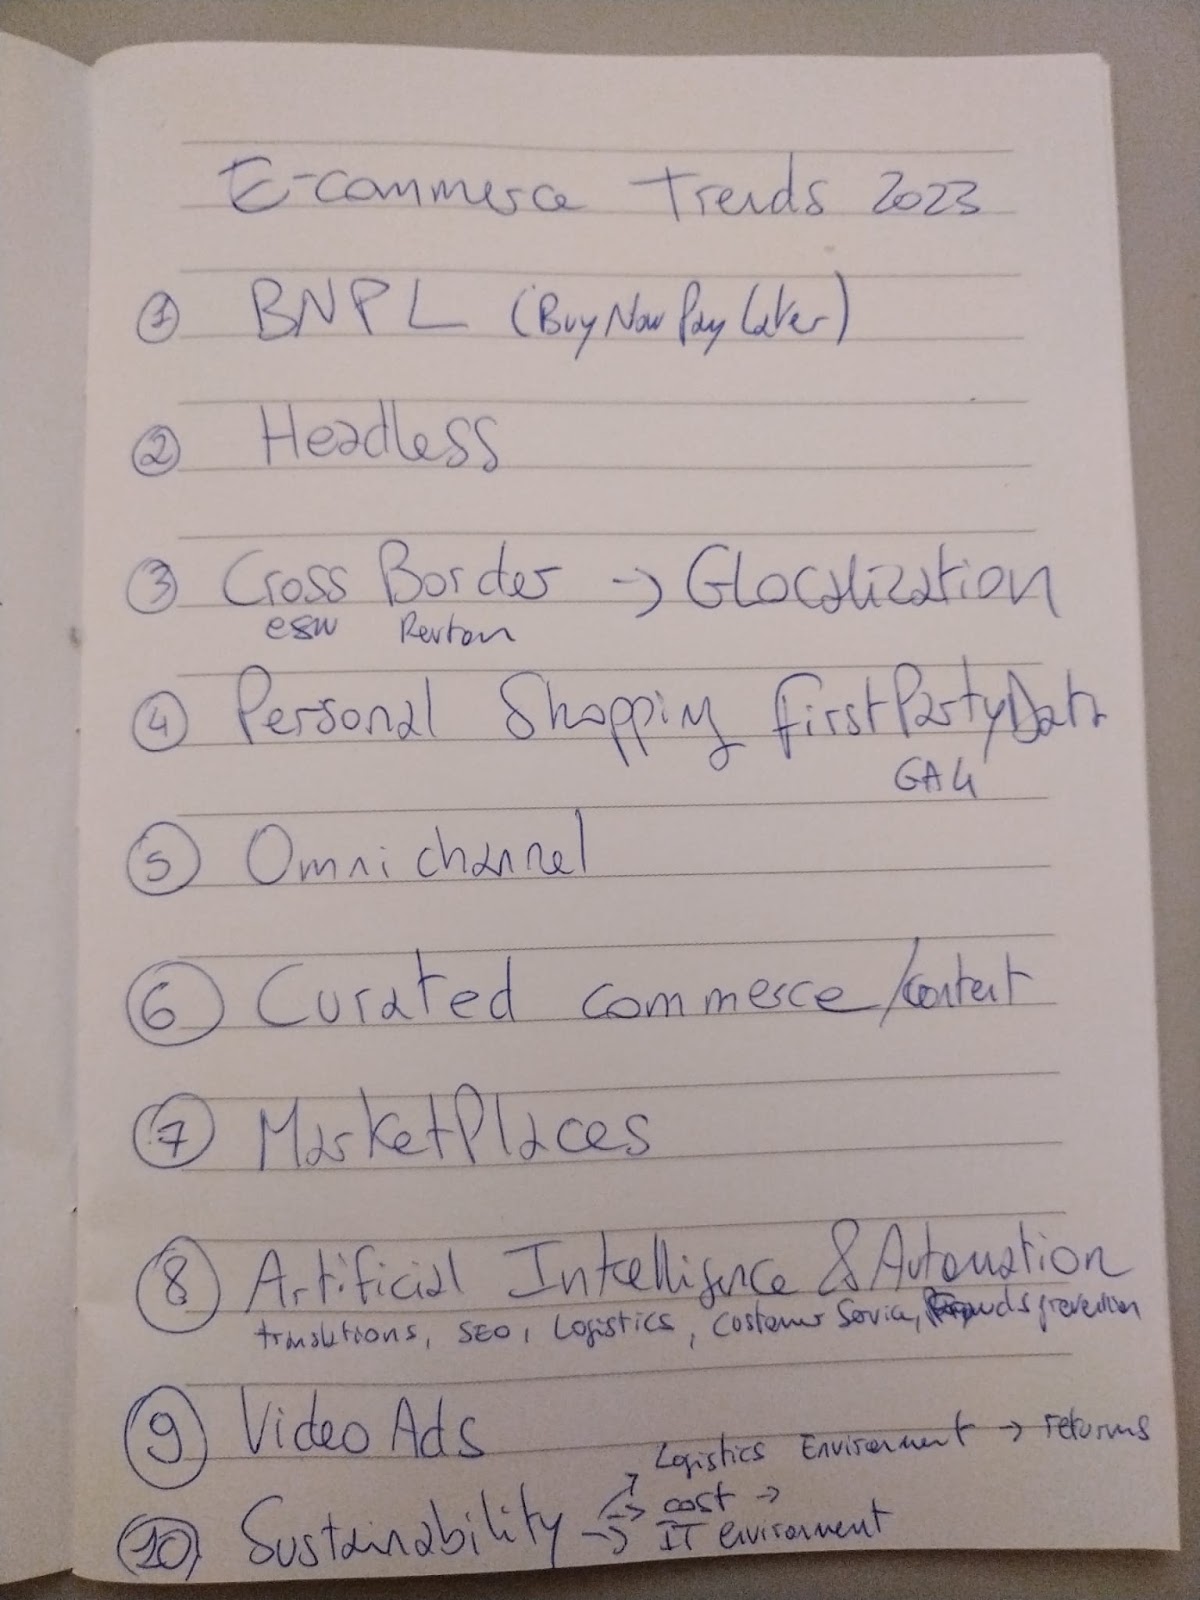 E-commerce Trends 2023
1 BNPL (Buy Now Pay Later)
2 Headless
3 Cross Border → Glocalization
esw
4 Personal Shopping First Party Data
GA4
5 Omnichannel
6 Curated commerce/content
7 MarketPlaces
8 Artificial Intelligence & Automation
translations, SEO, Logistics, Costumer Service, prevention
9 Video Ads
Logistics Environment → returns
10 Sustainability → cost →
→ IT environment